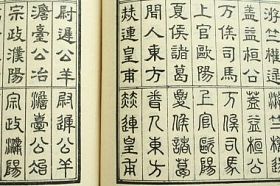 游竺權逯
蓋益桓公
蓋益桓公
万俟司馬
万俟司馬
上官歐陽
上官歐陽
夏侯諸葛
夏侯諸葛
聞人東方
聞人東方
赫連皇甫
赫連皇甫
尉遲公羊
尉遲公羊
澹臺公冶
澹臺公冶
宗政濮陽
宗政濮陽